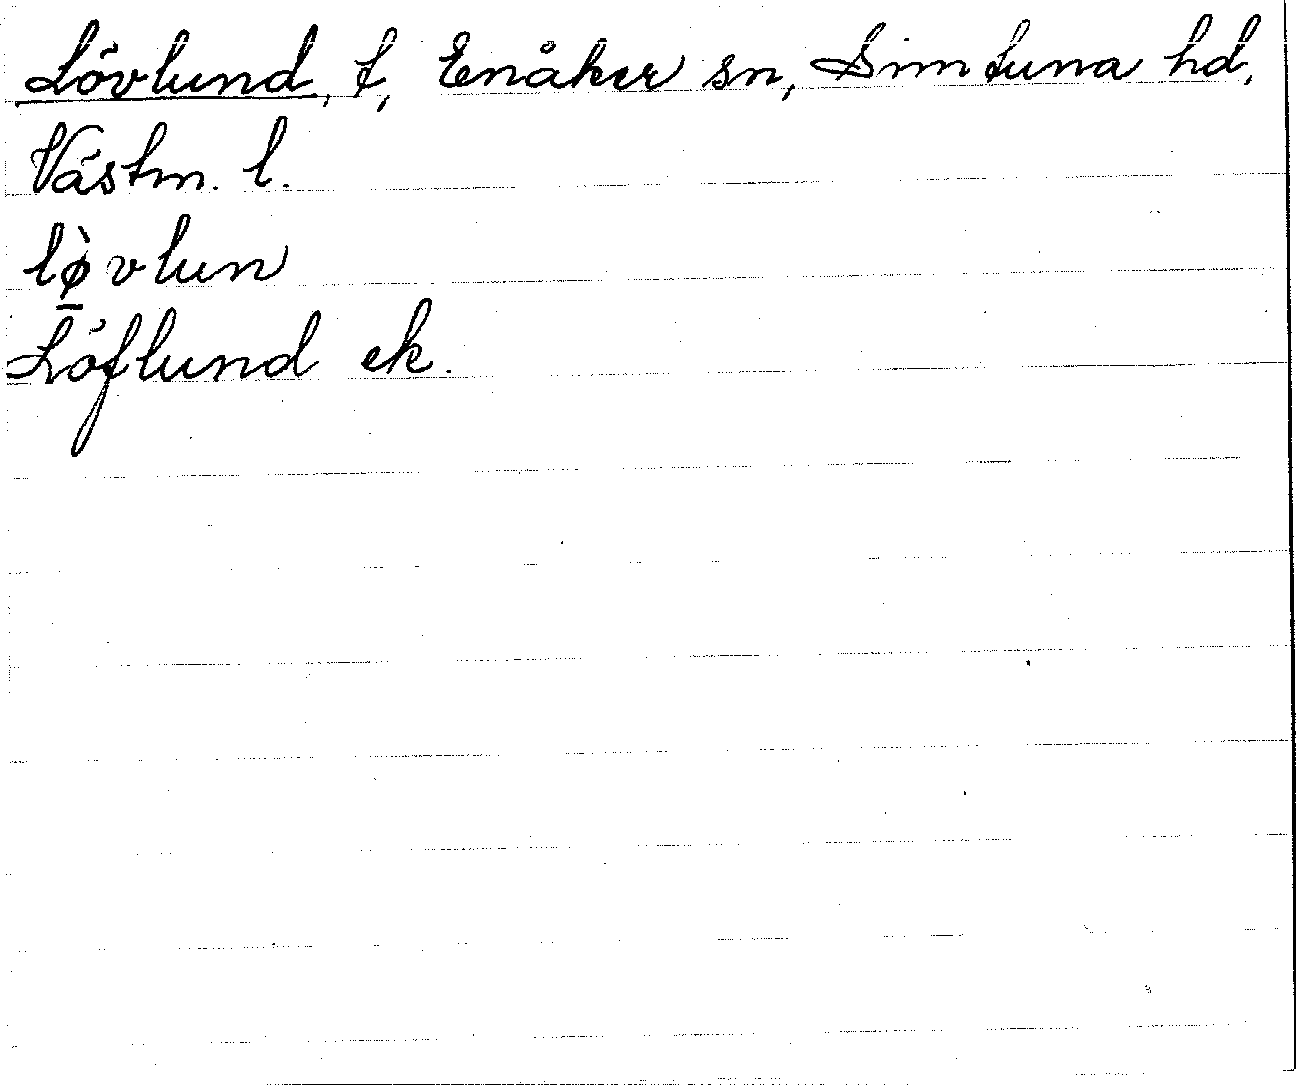 Lövlund, t, Enåker sn, Simtuna hd,
Västm. l.
lø̱̀vlun
Löflund ek.